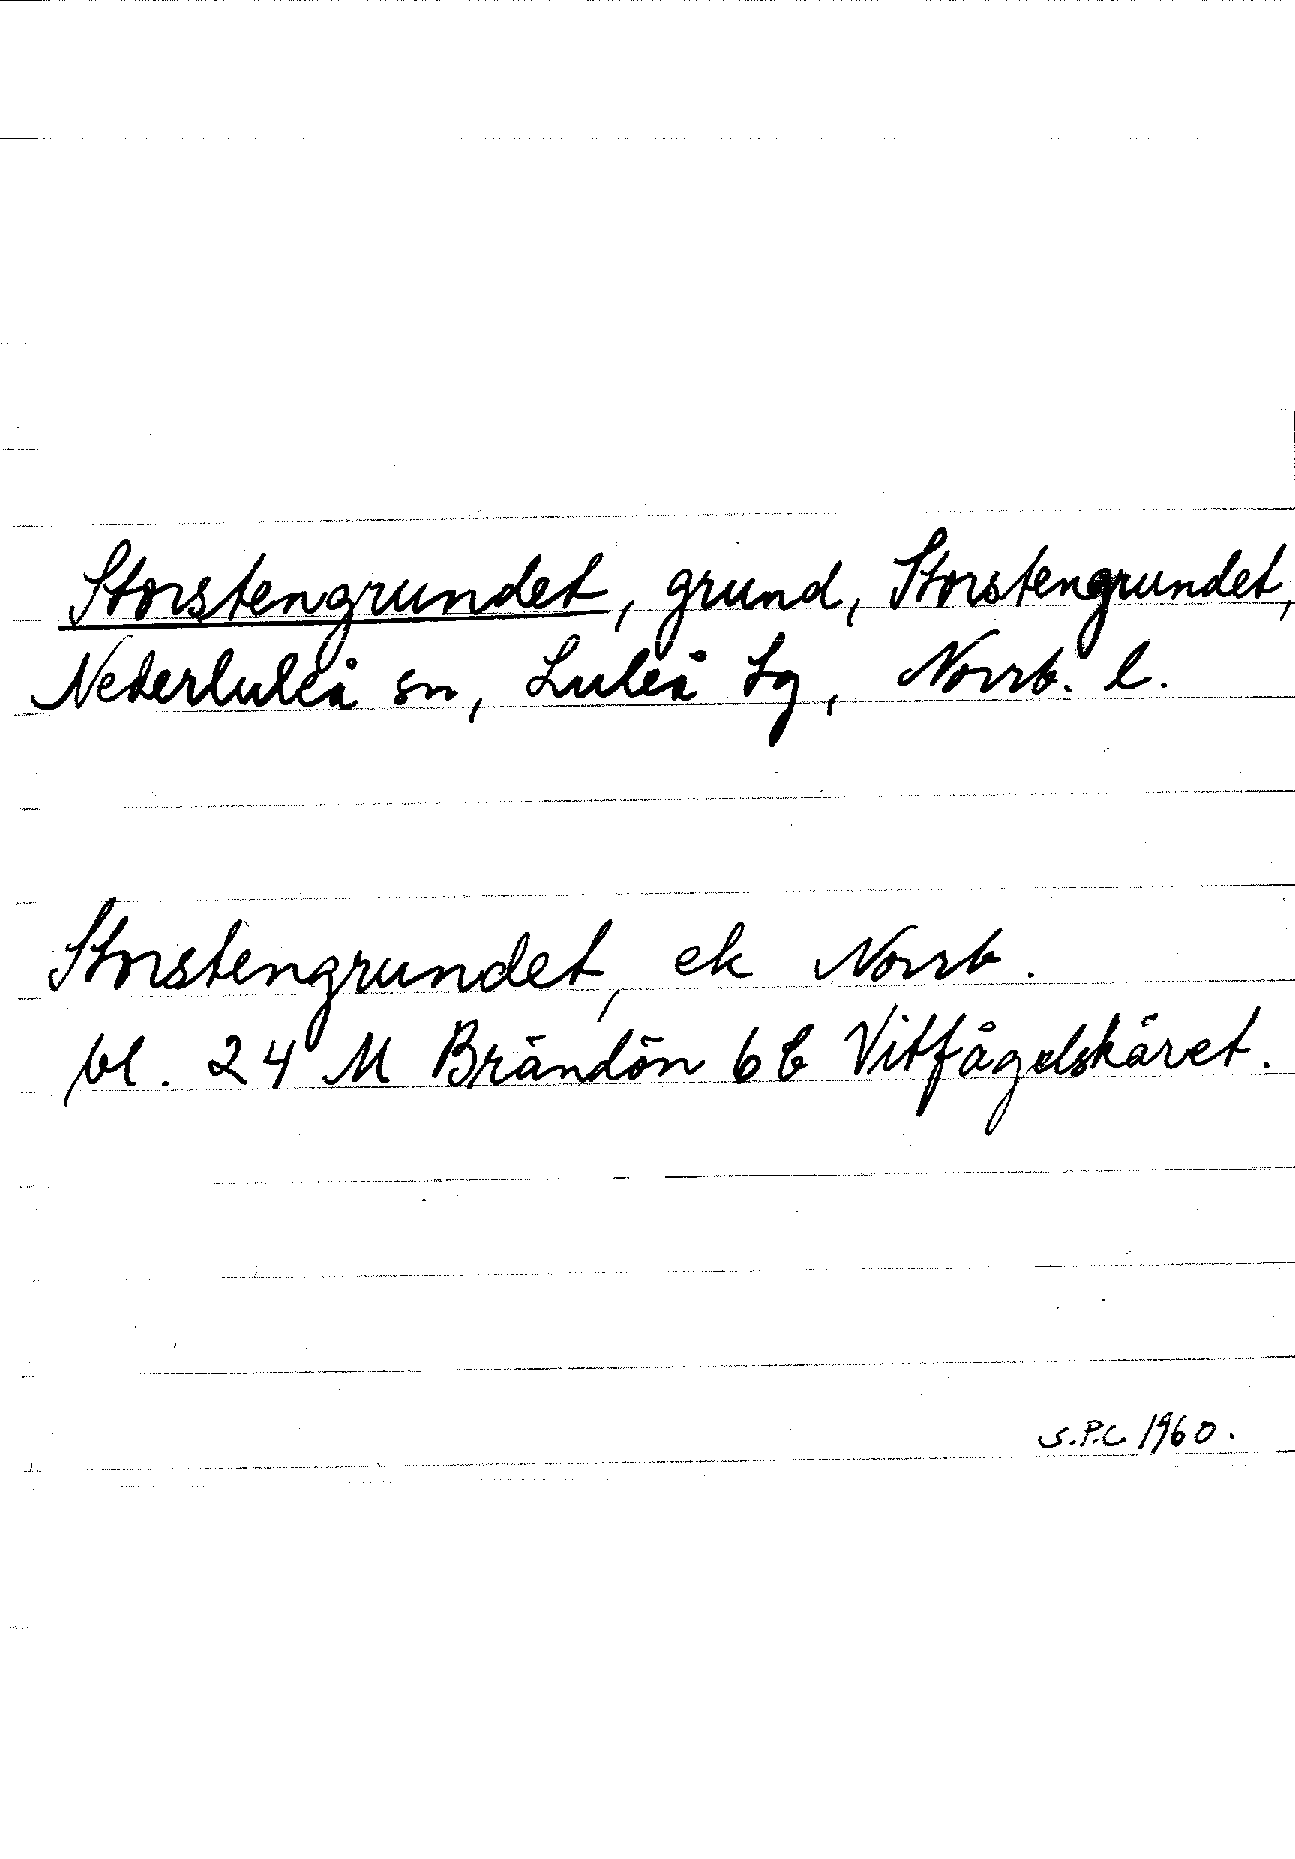 Storstengrundet, grund, Storstengrundet,
Nederluleå sn, Luleå tg, Norrb. l.
Storstengrundet, ek Norrb.
bl. 24 M Brändön 6b Vitfågelskäret.
S.P.C 1960.